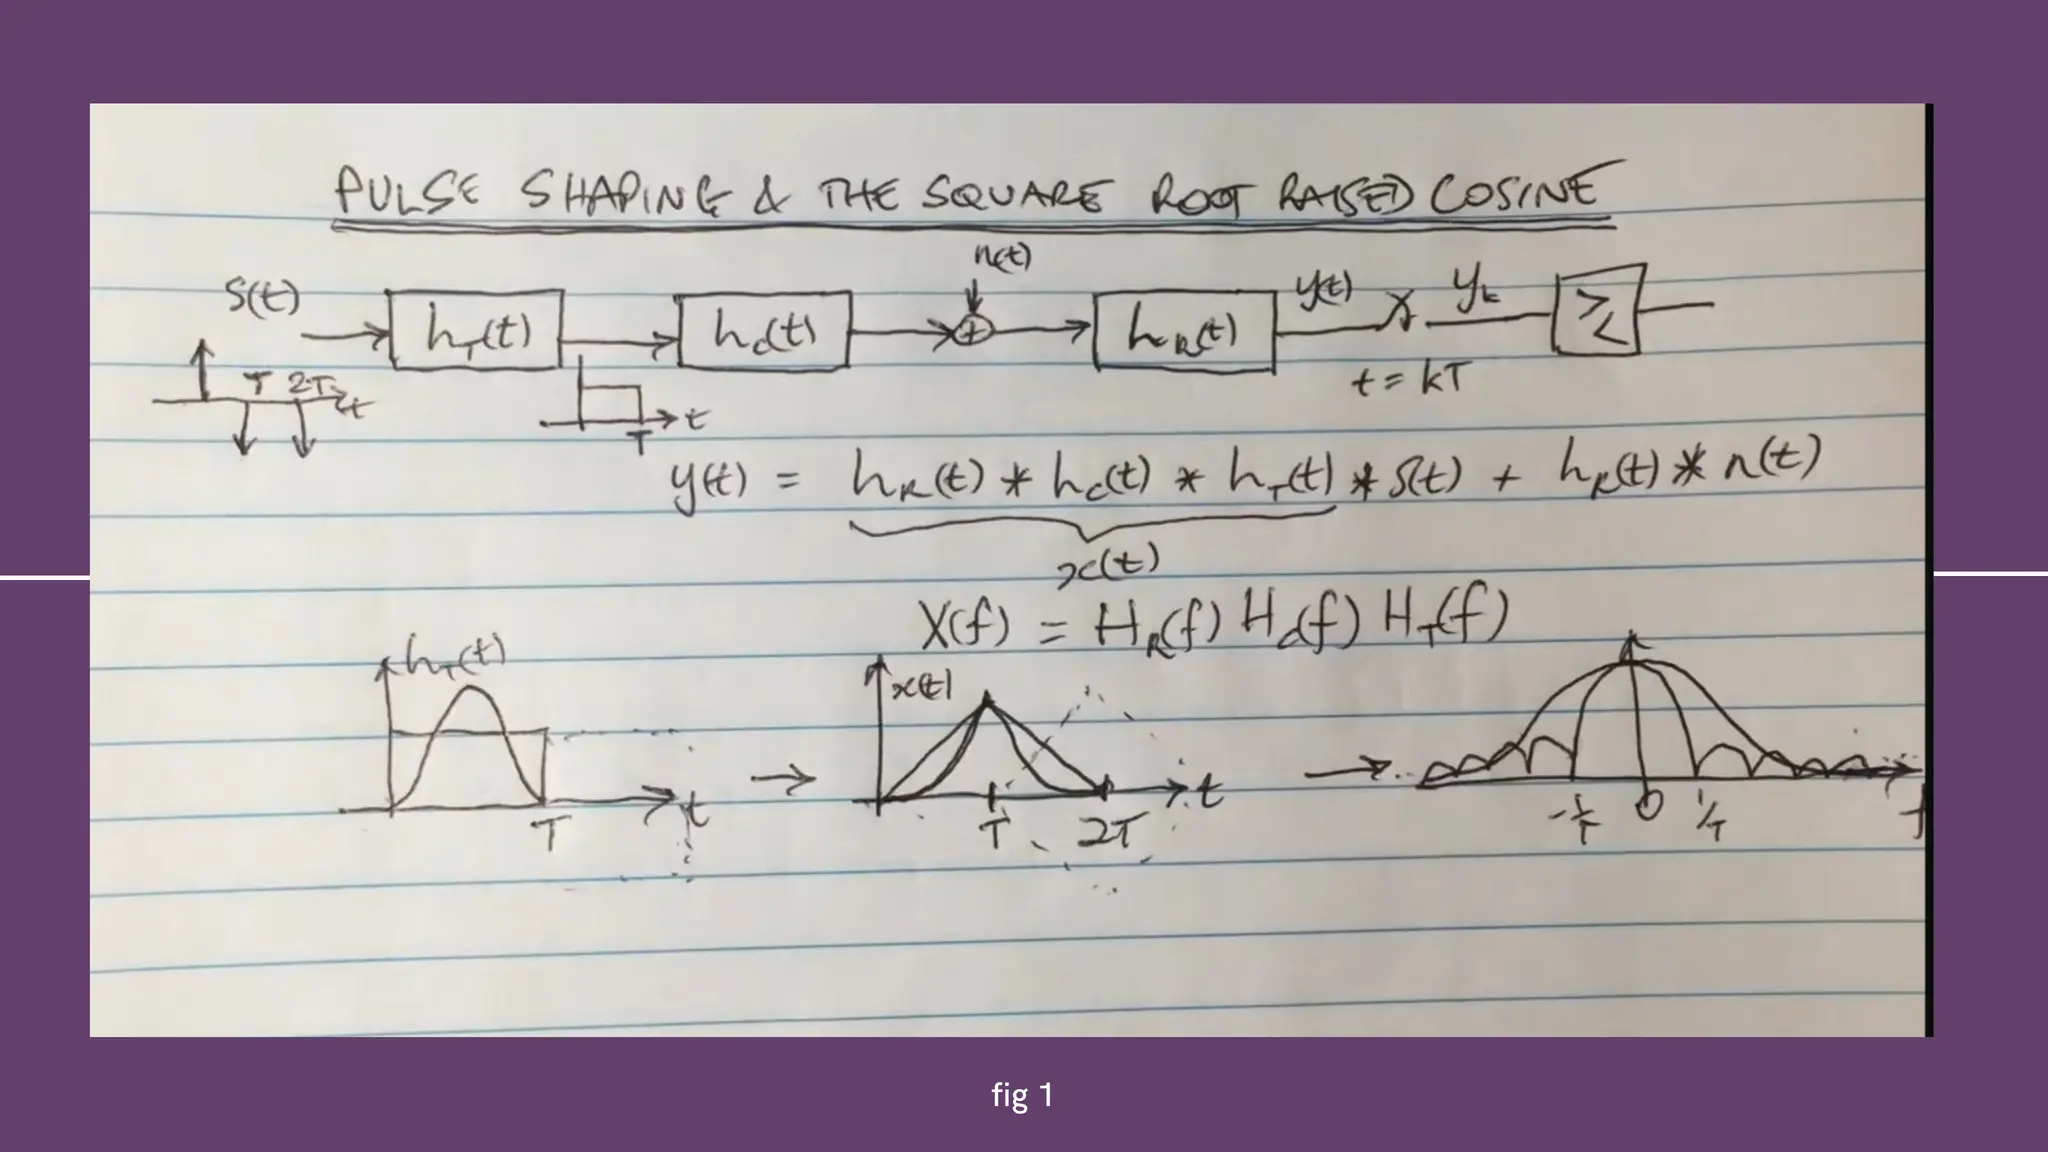 PULSE SHAPING & THE SQUARE ROOT RAISED COSINE
n(t)
S(t) h_T(t) h_c(t) + h_R(t) y(t) y_k ≷
T 2T t
T t
t = kT
y(t) = h_R(t) * h_c(t) * h_T(t) * S(t) + h_R(t) * n(t)
x(t)
X(f) = H_R(f) H_c(f) H_T(f)
h_T(t) x(t)
T t T 2T t -1/T 0 1/T f
fig 1